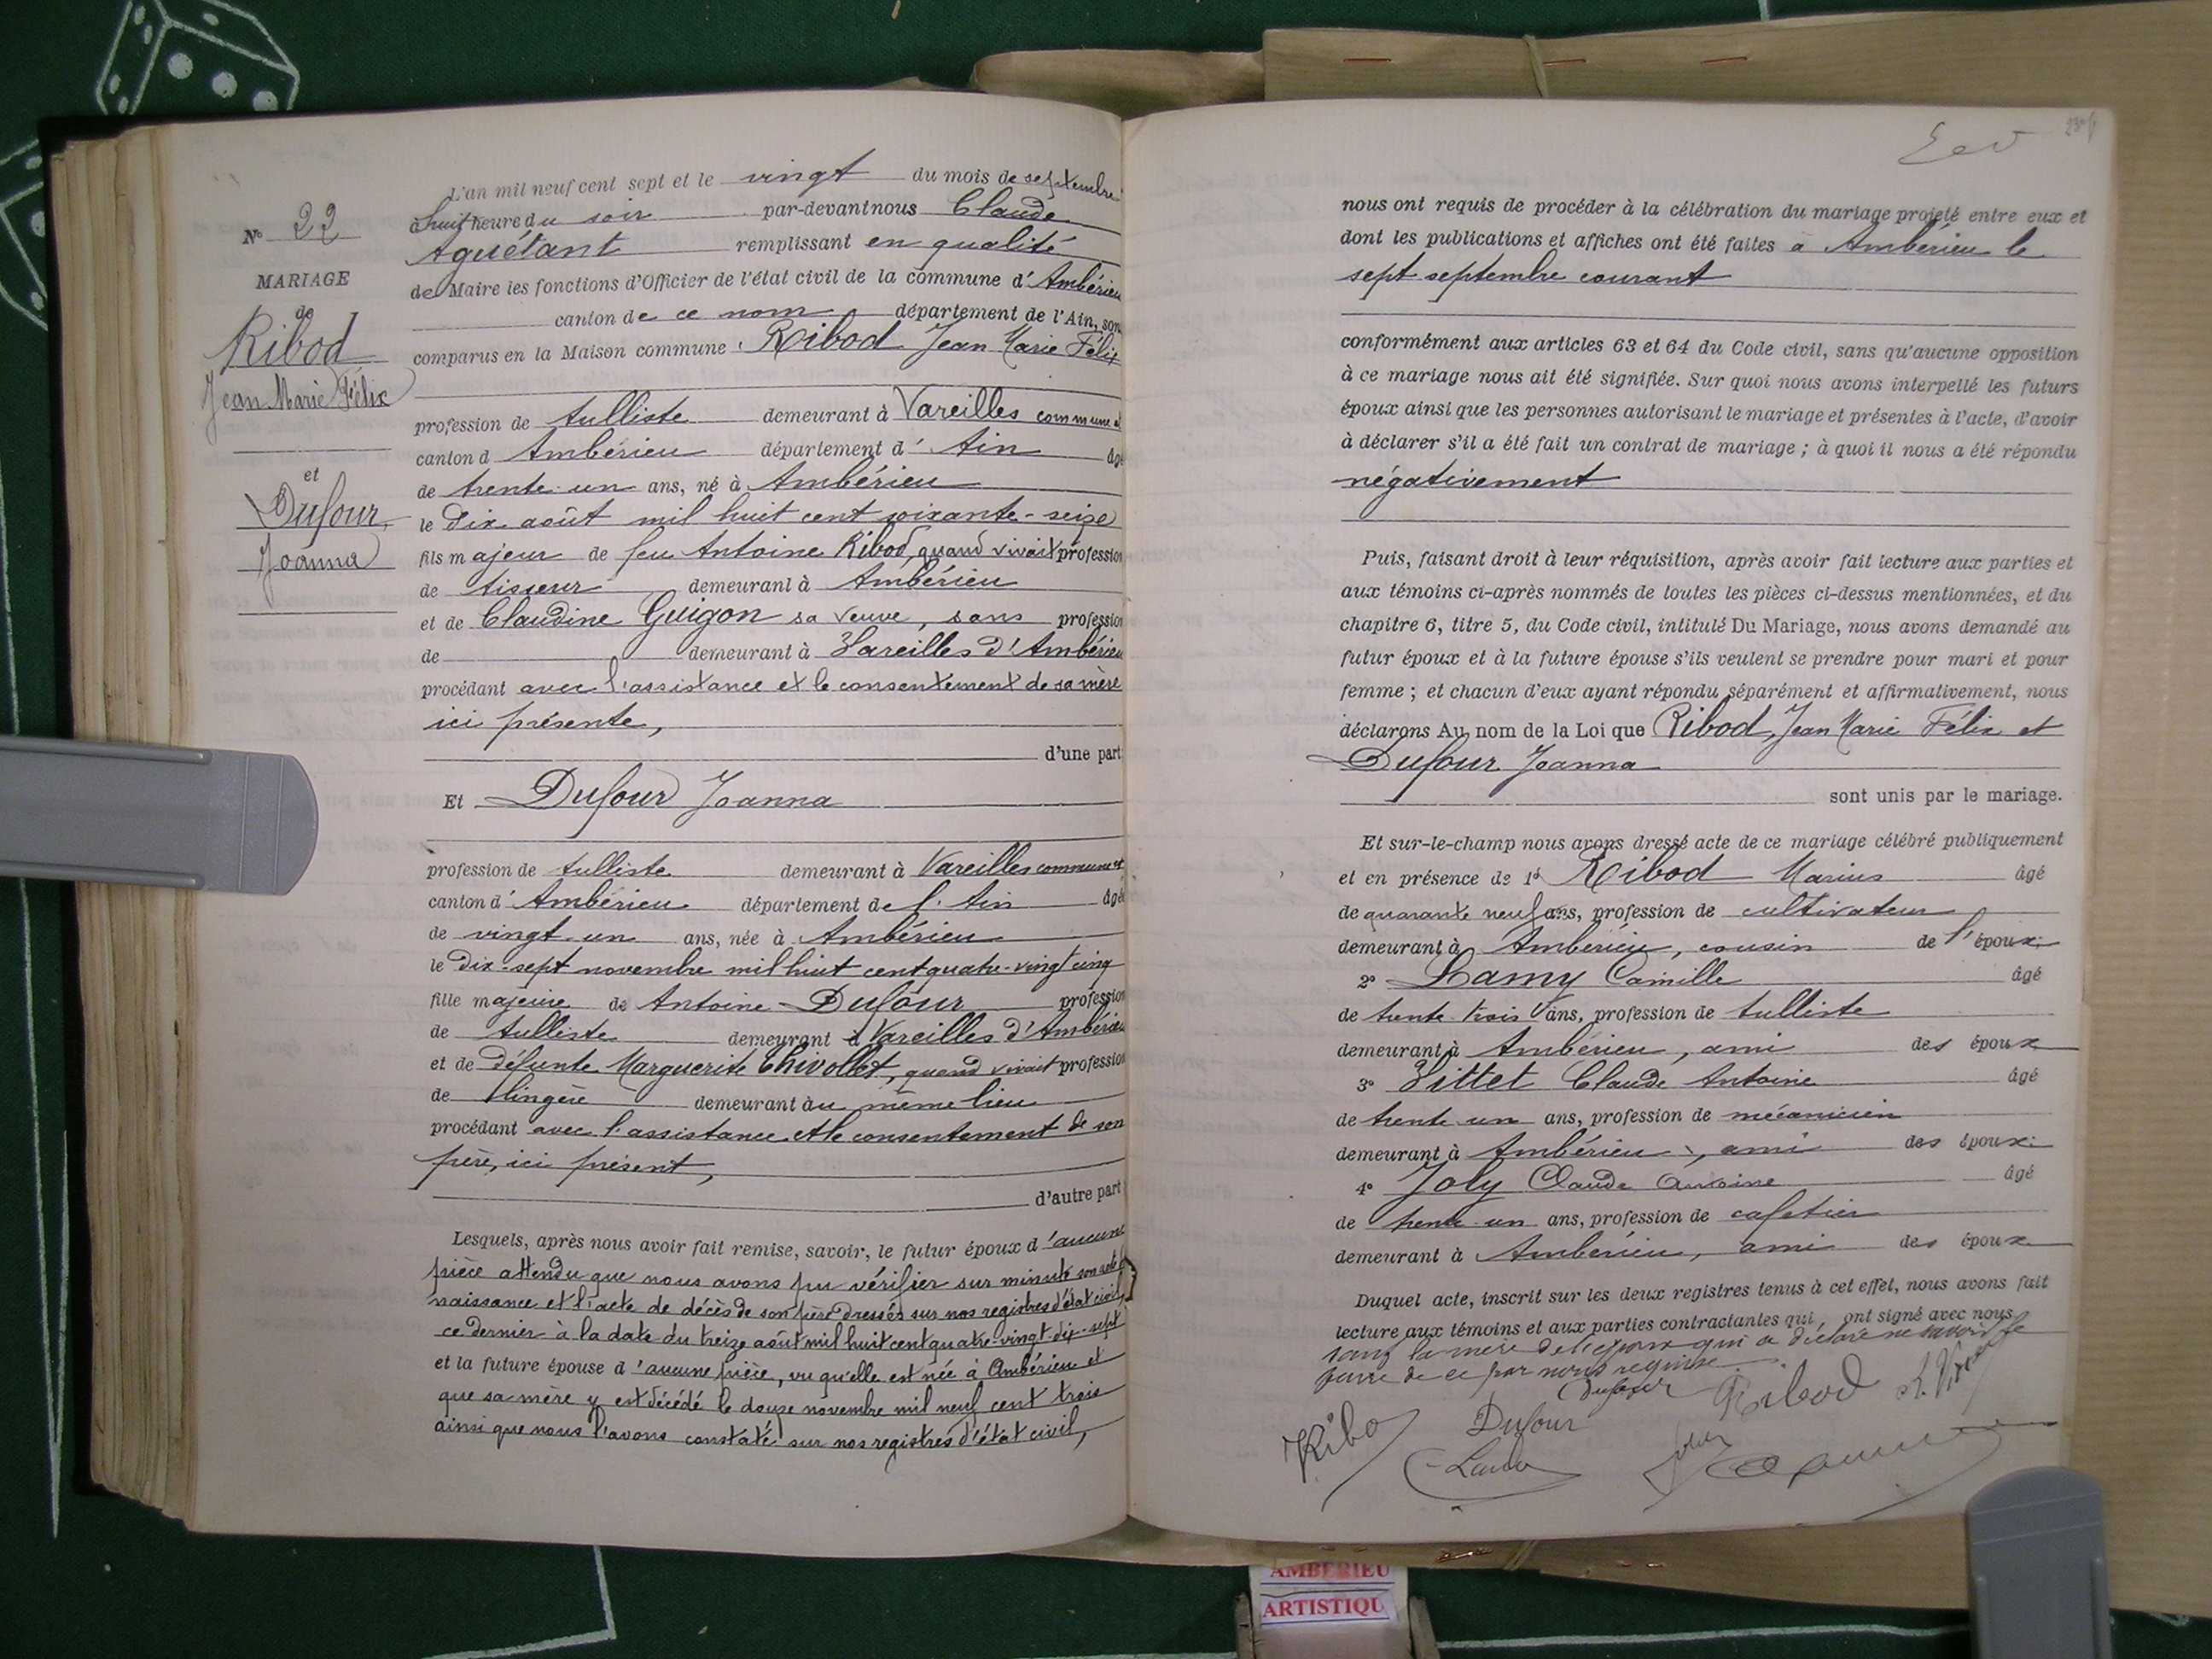 N° 22
MARIAGE
de
Ribod
Jean Marie Félix
et
Dufour
Joanna
L'an mil neuf cent sept et le vingt du mois de septembre
à huit heure du soir par-devant nous Claude
Aguétant remplissant en qualité
de Maire les fonctions d'Officier de l'état civil de la commune d'Ambérieu
canton de ce nom département de l'Ain, son
comparus en la Maison commune : Ribod Jean Marie Félix
profession de tulliste demeurant à Vareilles commune et
canton d Ambérieu département d' Ain âgé
de trente un ans, né à Ambérieu
le dix août mil huit cent soixante-seize
fils majeur de feu Antoine Ribod, quand vivait profession
de tisseur demeurant à Ambérieu
et de Claudine Guigon sa veuve, sans profession
de demeurant à Vareilles d'Ambérieu
procédant avec l'assistance et le consentement de sa mère
ici présente,
d'une part
Et Dufour Joanna
profession de tulliste demeurant à Vareilles commune et
canton d' Ambérieu département de l'Ain âgée
de vingt-un ans, née à Ambérieu
le dix-sept novembre mil huit cent quatre-vingt cinq
fille majeure de Antoine Dufour profession
de tulliste demeurant à Vareilles d'Ambérieu
et de défunte Marguerite Chivollet, quand vivait profession
de lingère demeurant au même lieu
procédant avec l'assistance et le consentement de son
père, ici présent,
d'autre part
Lesquels, après nous avoir fait remise, savoir, le futur époux d'aucune
pièce attendu que nous avons pu vérifier sur minute son acte de
naissance et l'acte de décès de son père dressés sur nos registres d'état civil,
ce dernier à la date du treize août mil huit cent quatre-vingt-dix-sept
et la future épouse d'aucune pièce, vu qu'elle est née à Ambérieu et
que sa mère y est décédé le douze novembre mil neuf cent trois
ainsi que nous l'avons constaté sur nos registres d'état civil,
nous ont requis de procéder à la célébration du mariage projeté entre eux et
dont les publications et affiches ont été faites à Ambérieu le
sept septembre courant
conformément aux articles 63 et 64 du Code civil, sans qu'aucune opposition
à ce mariage nous ait été signifiée. Sur quoi nous avons interpellé les futurs
époux ainsi que les personnes autorisant le mariage et présentes à l'acte, d'avoir
à déclarer s'il a été fait un contrat de mariage ; à quoi il nous a été répondu
négativement
Puis, faisant droit à leur réquisition, après avoir fait lecture aux parties et
aux témoins ci-après nommés de toutes les pièces ci-dessus mentionnées, et du
chapitre 6, titre 5, du Code civil, intitulé Du Mariage, nous avons demandé au
futur époux et à la future épouse s'ils veulent se prendre pour mari et pour
femme ; et chacun d'eux ayant répondu séparément et affirmativement, nous
déclarons Au nom de la Loi que Ribod, Jean Marie Félix et
Dufour Joanna
sont unis par le mariage.
Et sur-le-champ nous avons dressé acte de ce mariage célébré publiquement
et en présence de 1° Ribod Marius âgé
de quarante neuf ans, profession de cultivateur
demeurant à Ambérieu, cousin de l'époux
2° Lamy Camille âgé
de trente trois ans, profession de tulliste
demeurant à Ambérieu, ami des époux
3° Vittet Claude Antoine âgé
de trente un ans, profession de mécanicien
demeurant à Ambérieu, ami des époux
4° Joly Claude Antoine âgé
de trente un ans, profession de cafetier
demeurant à Ambérieu, ami des époux
Duquel acte, inscrit sur les deux registres tenus à cet effet, nous avons fait
lecture aux témoins et aux parties contractantes qui, ont signé avec nous
sauf la mère de l'époux qui a déclaré ne savoir le
faire de ce par nous requise
Dufour Ribod
Ribo Dufour
AMBERIEU
ARTISTIQU